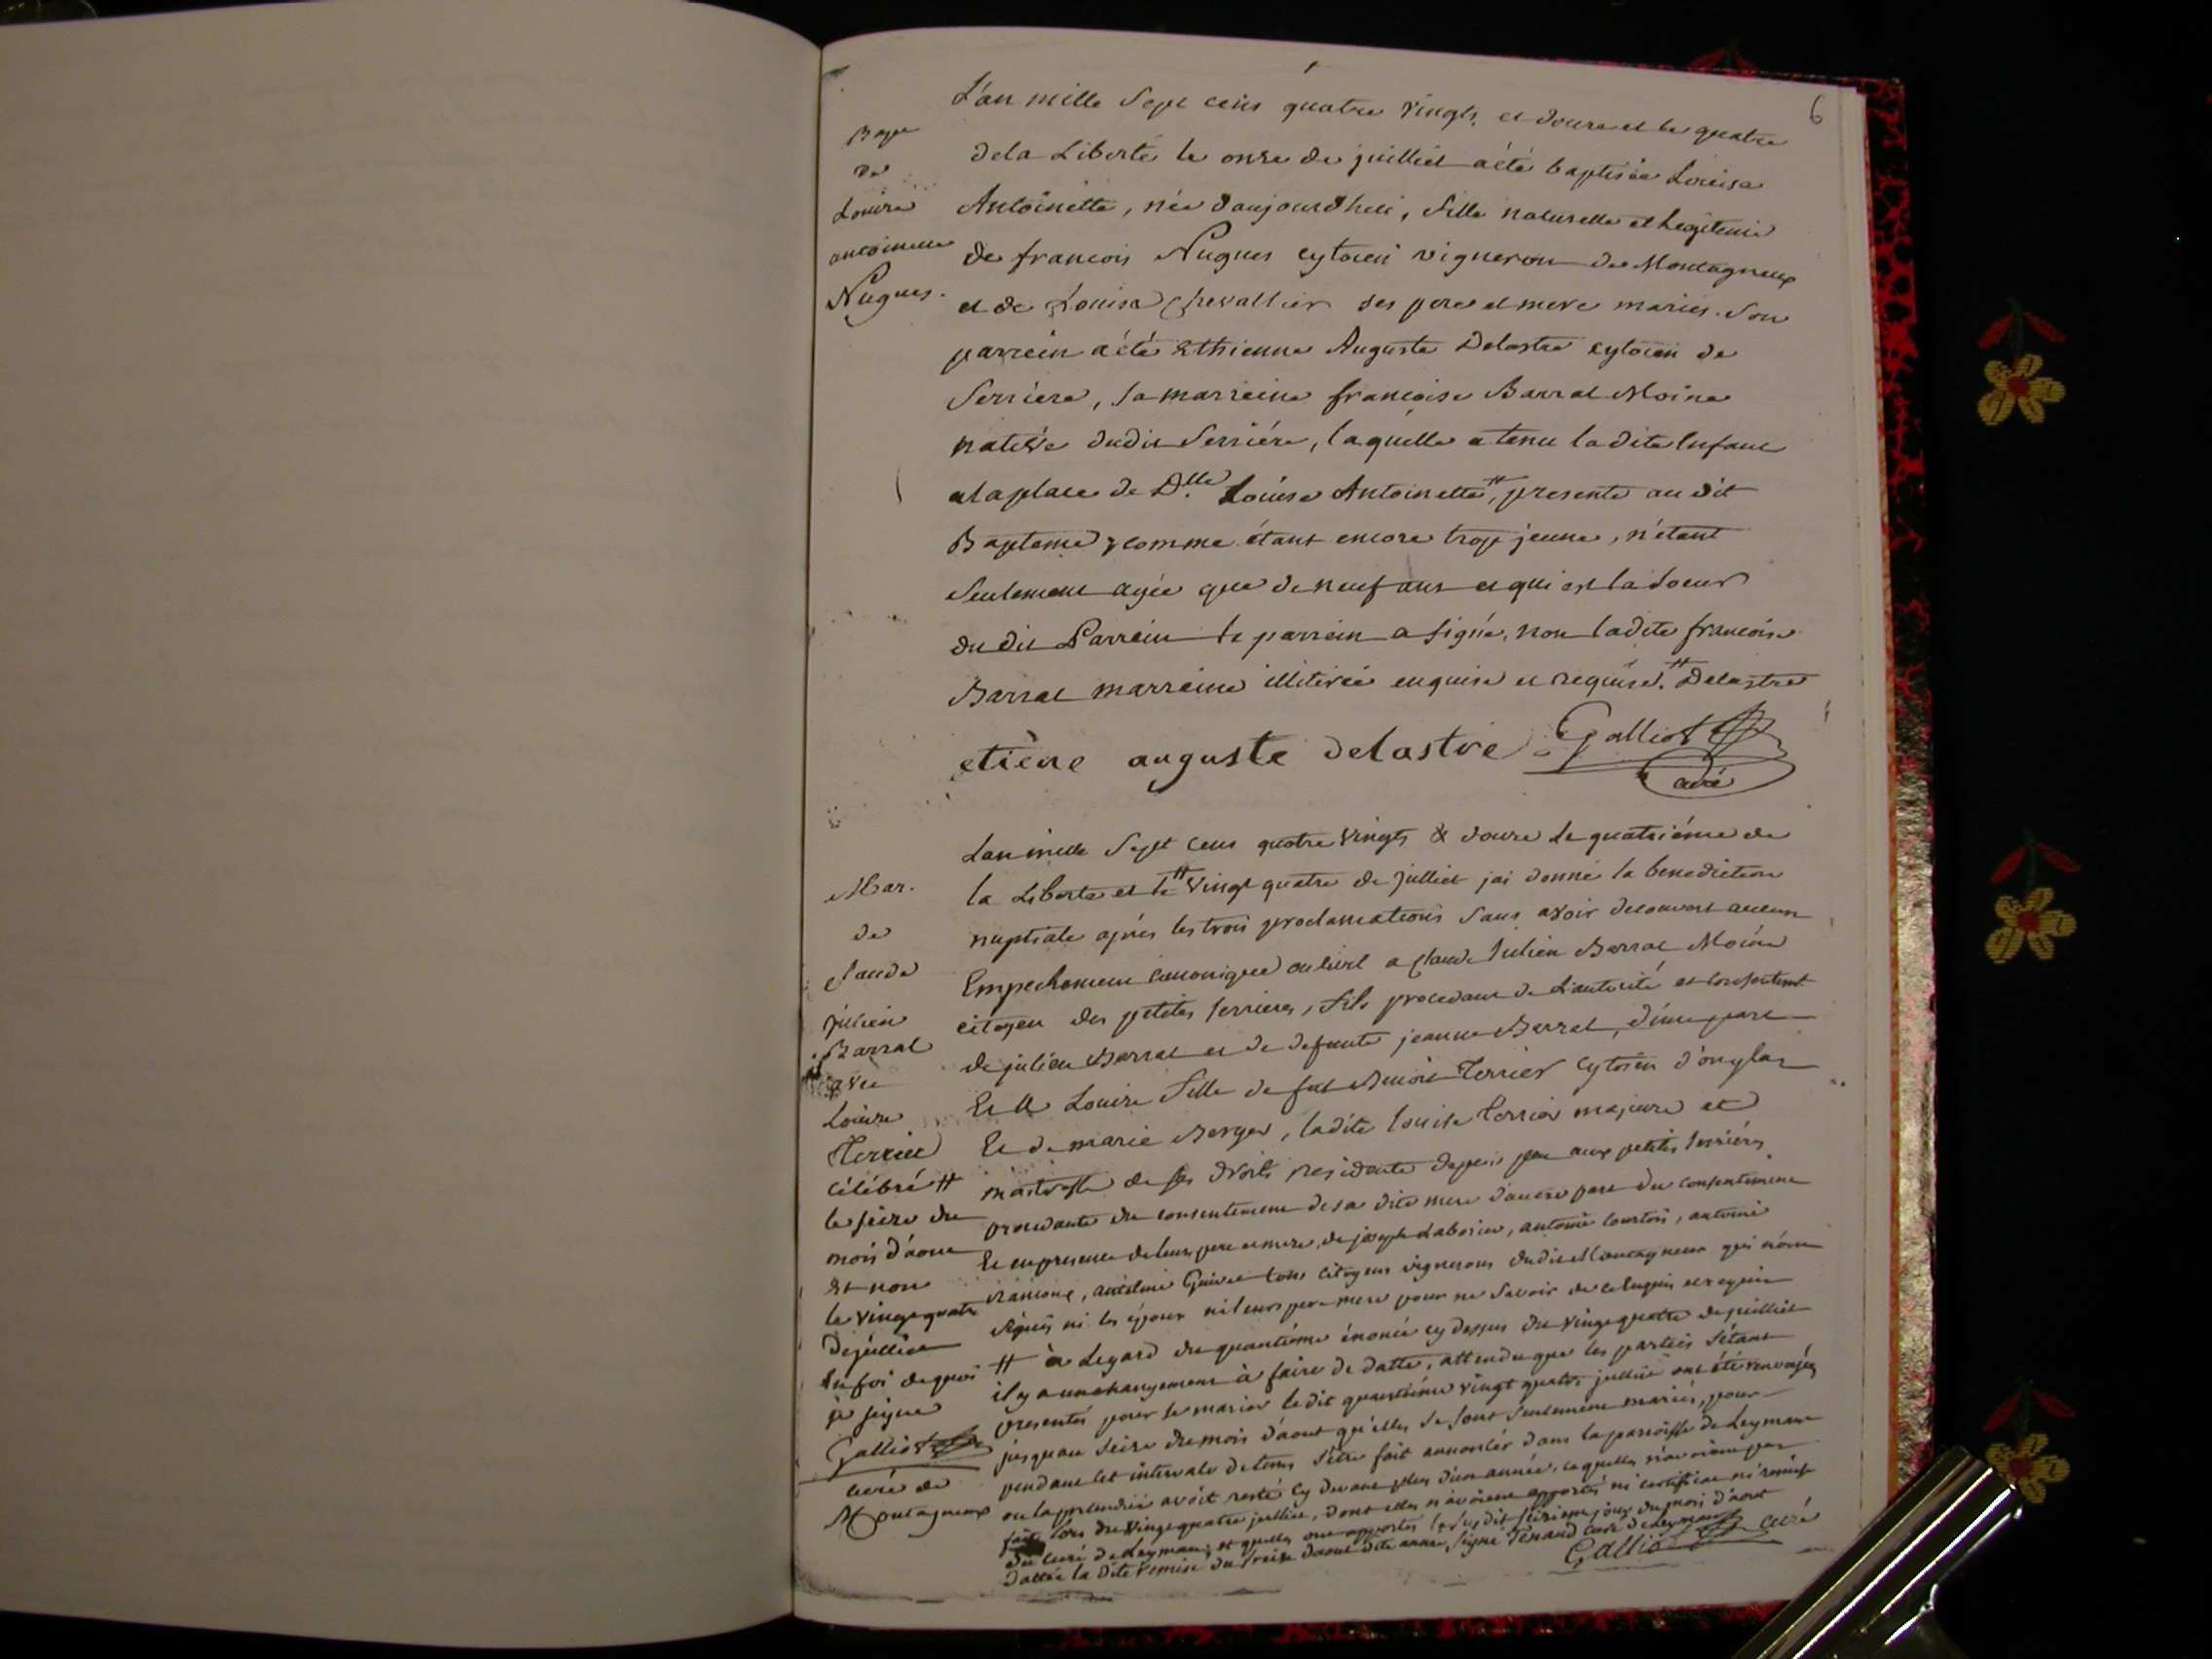 6
Bap.
de
Louise
antoinette
Nugues.
L'an mille Sept cens quatre vingts et douze et le quatre
dela Liberté le onze de juilliet a été baptisée Louise
Antoinette, née daujourdhui, fille naturelle et Legitime
de francois Nugues cytoien vigneron de Montagneux
et de Louise Chevallier ses pere et mere mariés. Son
parrein a été Ethienne Auguste Delastre cytoien de
Serriere, sa marreine francoise Barral Moine
native dudit Serriére, laquelle a tenu ladite Enfant
alaplace de Dlle Louise Antoinette ⧺, presente au dit
Bapteme, comme étant encore trop jeune, n'étant
Seulement agée que de neuf ans et qui est la soeur
du dit Parrein le parrein a signé, non ladite francoise
Barral marreine illiterée enquise et requise. ⧺ Delastre
etiène auguste delastre Galliot
curé
Mar.
de
claude
julien
Barral
avec
Louise
Terrier
célébré ⧺
le seize du
mois d'aout
Et non
le vingt quatre
de juilliet
En foi de quoi
j'ai signé
Galliot
curé de
Montagneux
Lan mille Sept cens quatre vingts & douze le quatriéme de
la Liberté et le ⧺ vingt quatre de juilliet jai donné la benediction
nuptiale aprés les trois proclamations sans avoir decouvert aucun
Empechement canonique ou civil a claude julien Barral Moine
citoyen des petites serrieres, fils procedant de L'autorité et consentement
de julien Barral et de defunte jeanne Barral, d'une part
Et a Louise fille de feu Benoit Terrier cytoien d'onglas
Et de marie Berger, ladite louise Terrier majeure et
maitresse de ses droits residente depuis peu aux petites serriéres
procedante du consentement de sa dite mere d'autre part du consentement
Et en presence de leurs pere et mere, de joseph Laborier, antoine courtois, antoine
antelme Guinet tous citoyens vignerons dudit Montagneux qui n'ont
signés ni les époux ni leurs pere mere pour ne savoir de ce enquis et requis
⧺ à Legard du quantiéme énoncé cy dessus du vingt quatre de juilliet
il y a un changement à faire de datte, attendu que les parties s'étant
presentés pour se marier le dit quantiéme vingt quatre juilliet ont été renvoyés
jusqu'au seize du mois d'aout qu'elles se sont seulement mariés, pour
pendant cet intervale de tems s'être fait annoncér dans la paroisse de Leyment
ou la prendriè avoit resté cy devant plus d'une année, ce quelles n'avoient pas
fait lors du vingt quatre juilliet, dont elles n'avoient apportés ni certificat ni remise
du curé de Leyment, et quelles ont apportés le susdit seizieme jour du mois d'aout
dattée la dite remise du treize daout dite année, signé Tenand curé de Leyment
Galliot curé